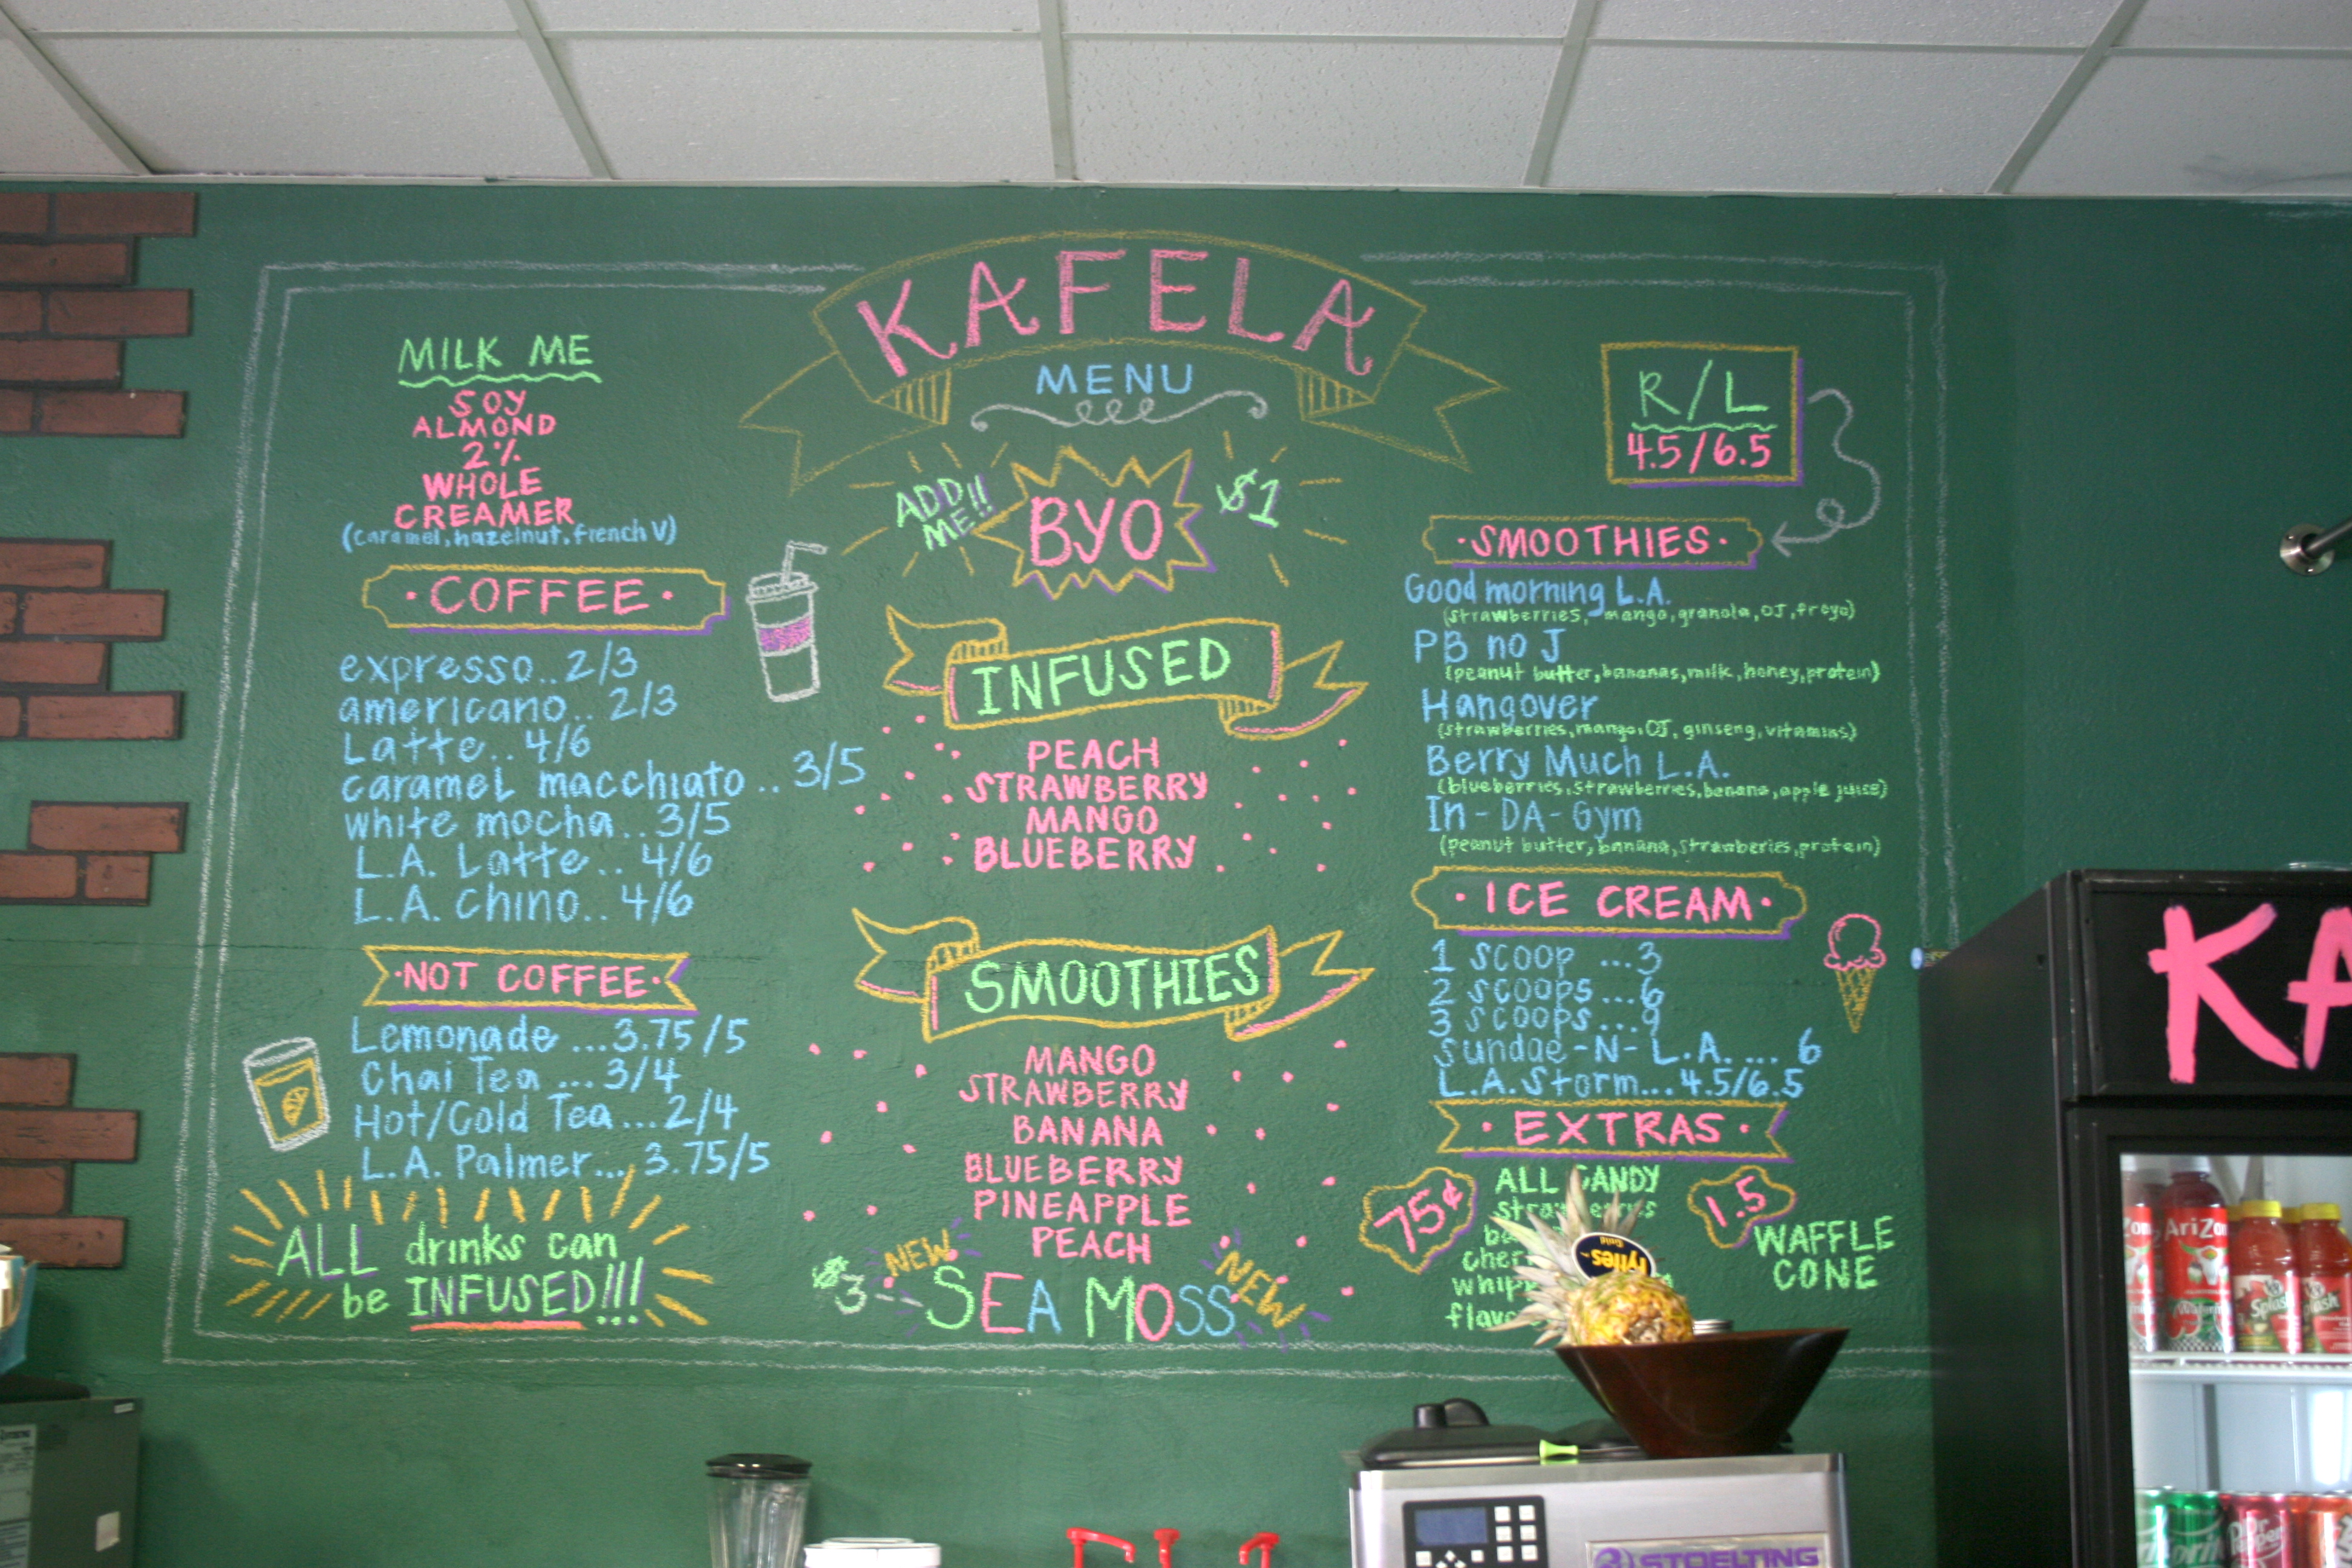 KAFELA
MENU
MILK ME
SOY
ALMOND
2%
WHOLE
CREAMER
(caramel, hazelnut, french V)
·COFFEE·
expresso..2/3
americano..2/3
Latte..4/6
caramel macchiato..3/5
white mocha..3/5
L.A. Latte..4/6
L.A. Chino..4/6
·NOT COFFEE·
Lemonade...3.75/5
Chai Tea...3/4
Hot/Cold Tea...2/4
L.A. Palmer...3.75/5
ALL drinks can
be INFUSED!!!
ADD ME!!
BYO
$1
INFUSED
PEACH
STRAWBERRY
MANGO
BLUEBERRY
SMOOTHIES
MANGO
STRAWBERRY
BANANA
BLUEBERRY
PINEAPPLE
PEACH
NEW
NEW
$3--SEA MOSS
R/L
4.5/6.5
·SMOOTHIES·
Good morning L.A.
(strawberries, mango, granola, OJ, froyo)
PB no J
(peanut butter, bananas, milk, honey, protein)
Hangover
(strawberries, mango, OJ, ginseng, vitamins)
Berry Much L.A.
(blueberries, strawberries, banana, apple juice)
In-DA-Gym
(peanut butter, banana, strawberies, protein)
·ICE CREAM·
1 scoop ...3
2 scoops...6
3 scoops...9
Sundae-N-L.A.... 6
L.A. Storm...4.5/6.5
·EXTRAS·
75¢
ALL CANDY
1.5
WAFFLE
CONE
Fyffes
Gold
KA
AriZo
Splash
STOELTING